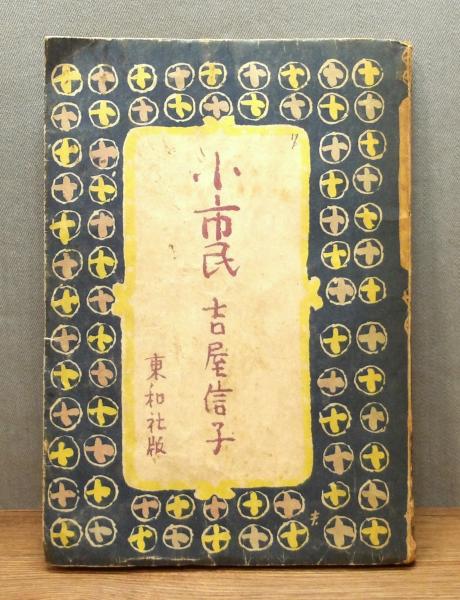 小市民
吉屋信子
東和社版